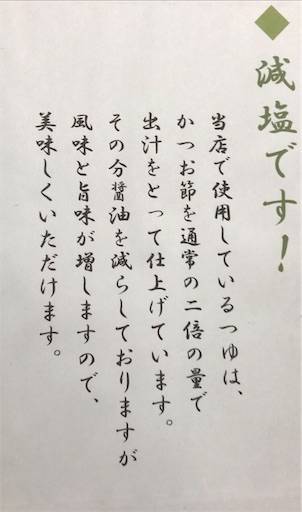 ◆減塩です!
当店で使用しているつゆは、
かつお節を通常の二倍の量で
出汁をとって仕上げています。
その分醤油を減らしておりますが
風味と旨味が増しますので、
美味しくいただけます。